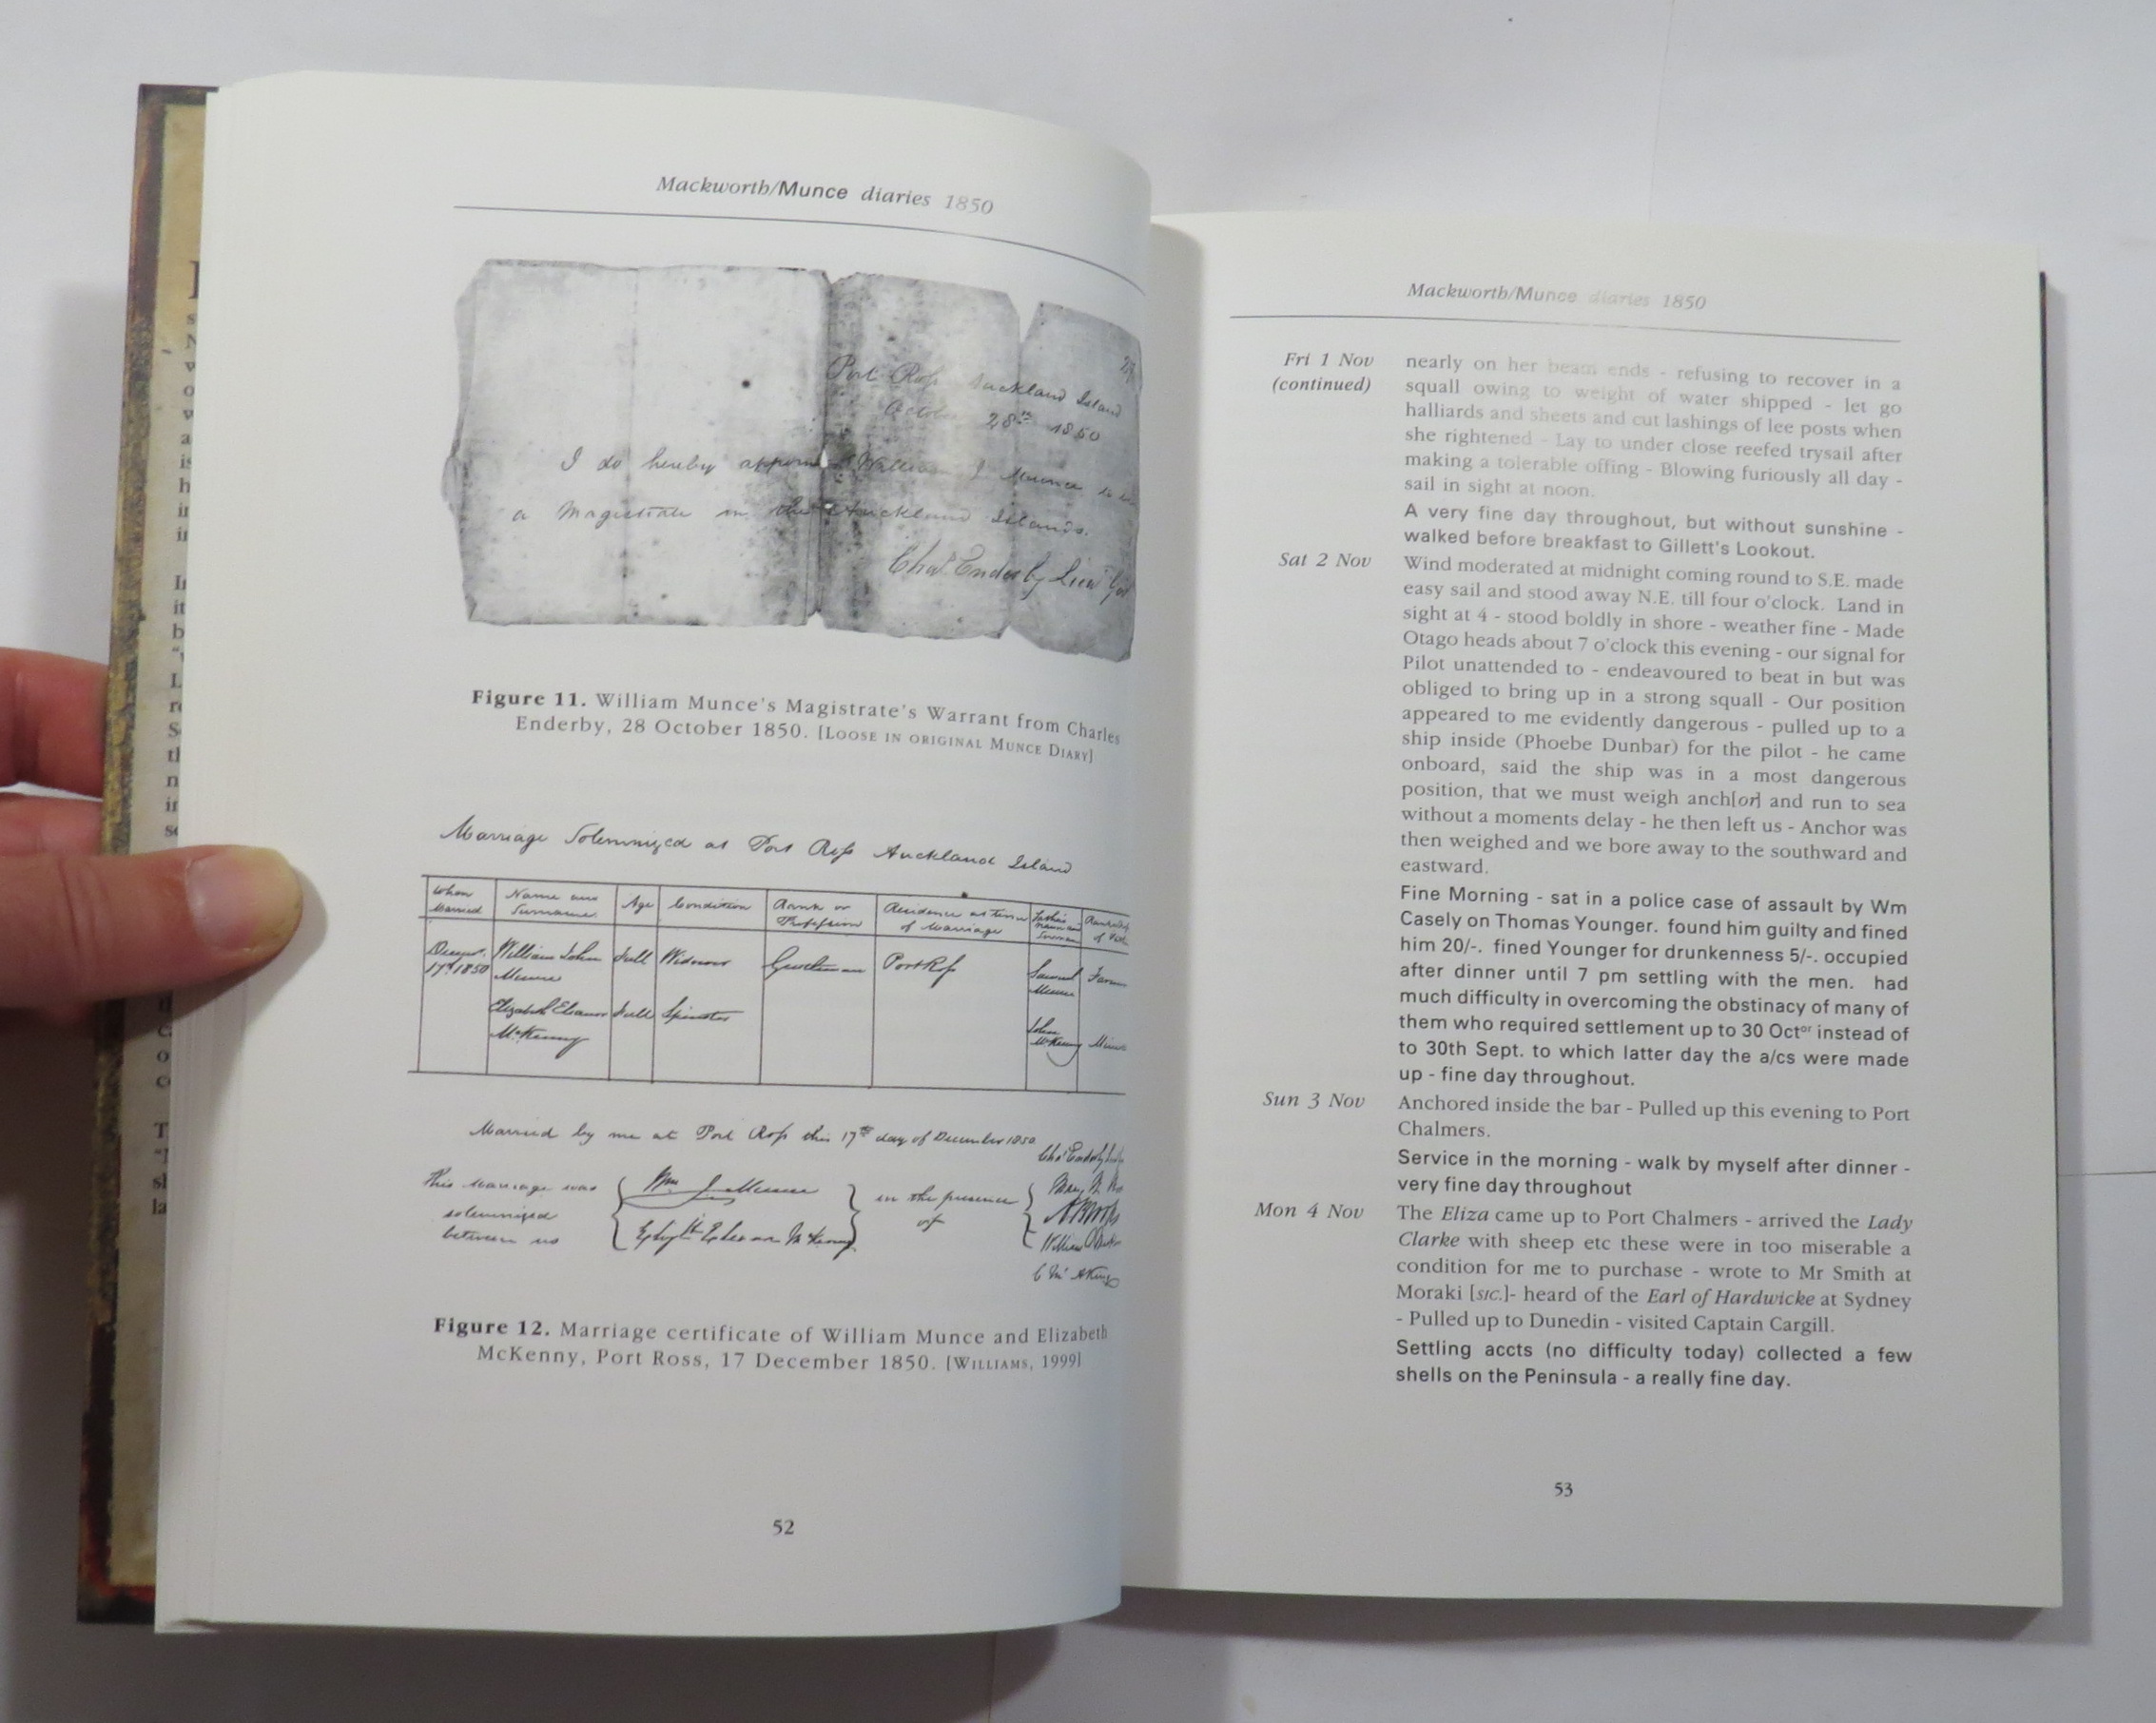 Mackworth/Munce diaries 1850
Port Ross Auckland Island
October 28th 1850
I do hereby appoint William J. Munce to be
a Magistrate in the Auckland Islands.
Chas. Enderby Lieut Gov
Figure 11. William Munce's Magistrate's Warrant from Charles
Enderby, 28 October 1850. [LOOSE IN ORIGINAL MUNCE DIARY]
Marriage Solemnized at Port Ross Auckland Island
When Married | Name and Surname | Age | Condition | Rank or Profession | Residence at time of Marriage | Father's Name and Surname
Decemr. 17th 1850 | William John Munce | Full | Widower | Gentleman | Port Ross | Samuel Munce
Elizabeth Eleanor McKenny | Full | Spinster | John McKenny
Married by me at Port Ross this 17th day of December 1850
This marriage was solemnized between us
Wm J. Munce
Elizth Eleanor McKenny
in the presence of
Figure 12. Marriage certificate of William Munce and Elizabeth
McKenny, Port Ross, 17 December 1850. [WILLIAMS, 1999]
52
Mackworth/Munce diaries 1850
Fri 1 Nov nearly on her beam ends - refusing to recover in a
(continued) squall owing to weight of water shipped - let go
halliards and sheets and cut lashings of lee posts when
she rightened - Lay to under close reefed trysail after
making a tolerable offing - Blowing furiously all day -
sail in sight at noon.
A very fine day throughout, but without sunshine -
walked before breakfast to Gillett's Lookout.
Sat 2 Nov Wind moderated at midnight coming round to S.E. made
easy sail and stood away N.E. till four o'clock. Land in
sight at 4 - stood boldly in shore - weather fine - Made
Otago heads about 7 o'clock this evening - our signal for
Pilot unattended to - endeavoured to beat in but was
obliged to bring up in a strong squall - Our position
appeared to me evidently dangerous - pulled up to a
ship inside (Phoebe Dunbar) for the pilot - he came
onboard, said the ship was in a most dangerous
position, that we must weigh anch[or] and run to sea
without a moments delay - he then left us - Anchor was
then weighed and we bore away to the southward and
eastward.
Fine Morning - sat in a police case of assault by Wm
Casely on Thomas Younger. found him guilty and fined
him 20/-. fined Younger for drunkenness 5/-. occupied
after dinner until 7 pm settling with the men. had
much difficulty in overcoming the obstinacy of many of
them who required settlement up to 30 Octor instead of
to 30th Sept. to which latter day the a/cs were made
up - fine day throughout.
Sun 3 Nov Anchored inside the bar - Pulled up this evening to Port
Chalmers.
Service in the morning - walk by myself after dinner -
very fine day throughout
Mon 4 Nov The Eliza came up to Port Chalmers - arrived the Lady
Clarke with sheep etc these were in too miserable a
condition for me to purchase - wrote to Mr Smith at
Moraki [SIC.]- heard of the Earl of Hardwicke at Sydney
- Pulled up to Dunedin - visited Captain Cargill.
Settling accts (no difficulty today) collected a few
shells on the Peninsula - a really fine day.
53